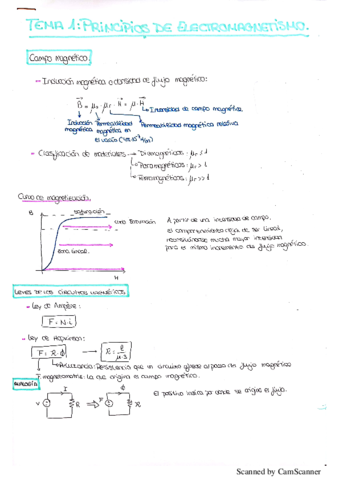 TEMA 1: PRINCIPIOS DE ELECTROMAGNETISMO.
Campo magnético.
- Inducción magnética o densidad de flujo magnético:
B = μ₀ · μr · H = μ · H
Intensidad de campo magnética.
Inducción Permeabilidad Permeabilidad magnética relativa
magnética magnética en
el vacío
- Clasificación de materiales: Diamagnéticos: μr
Paramagnéticos: μr > 1
Ferromagnéticos: μr >> 1
Curva de magnetización.
B
saturación
zona saturación
zona lineal.
H
A partir de una intensidad de campo,
el comportamiento deja de ser lineal,
necesitándose mucha mayor intensidad
para el mismo incremento de flujo magnético.
LEYES DE LOS CIRCUITOS MAGNÉTICOS
- Ley de Ampère:
F = N·i
- Ley de Hopkinson:
F = R·Φ → R = l / μS
Reluctancia: Resistencia que un circuito ofrece al paso de flujo magnético
F magnetomotriz: la que origina el campo magnético.
ANALOGÍA
I
V
R
F
Φ
R
El positivo indica por donde se origina el flujo.
Scanned by CamScanner